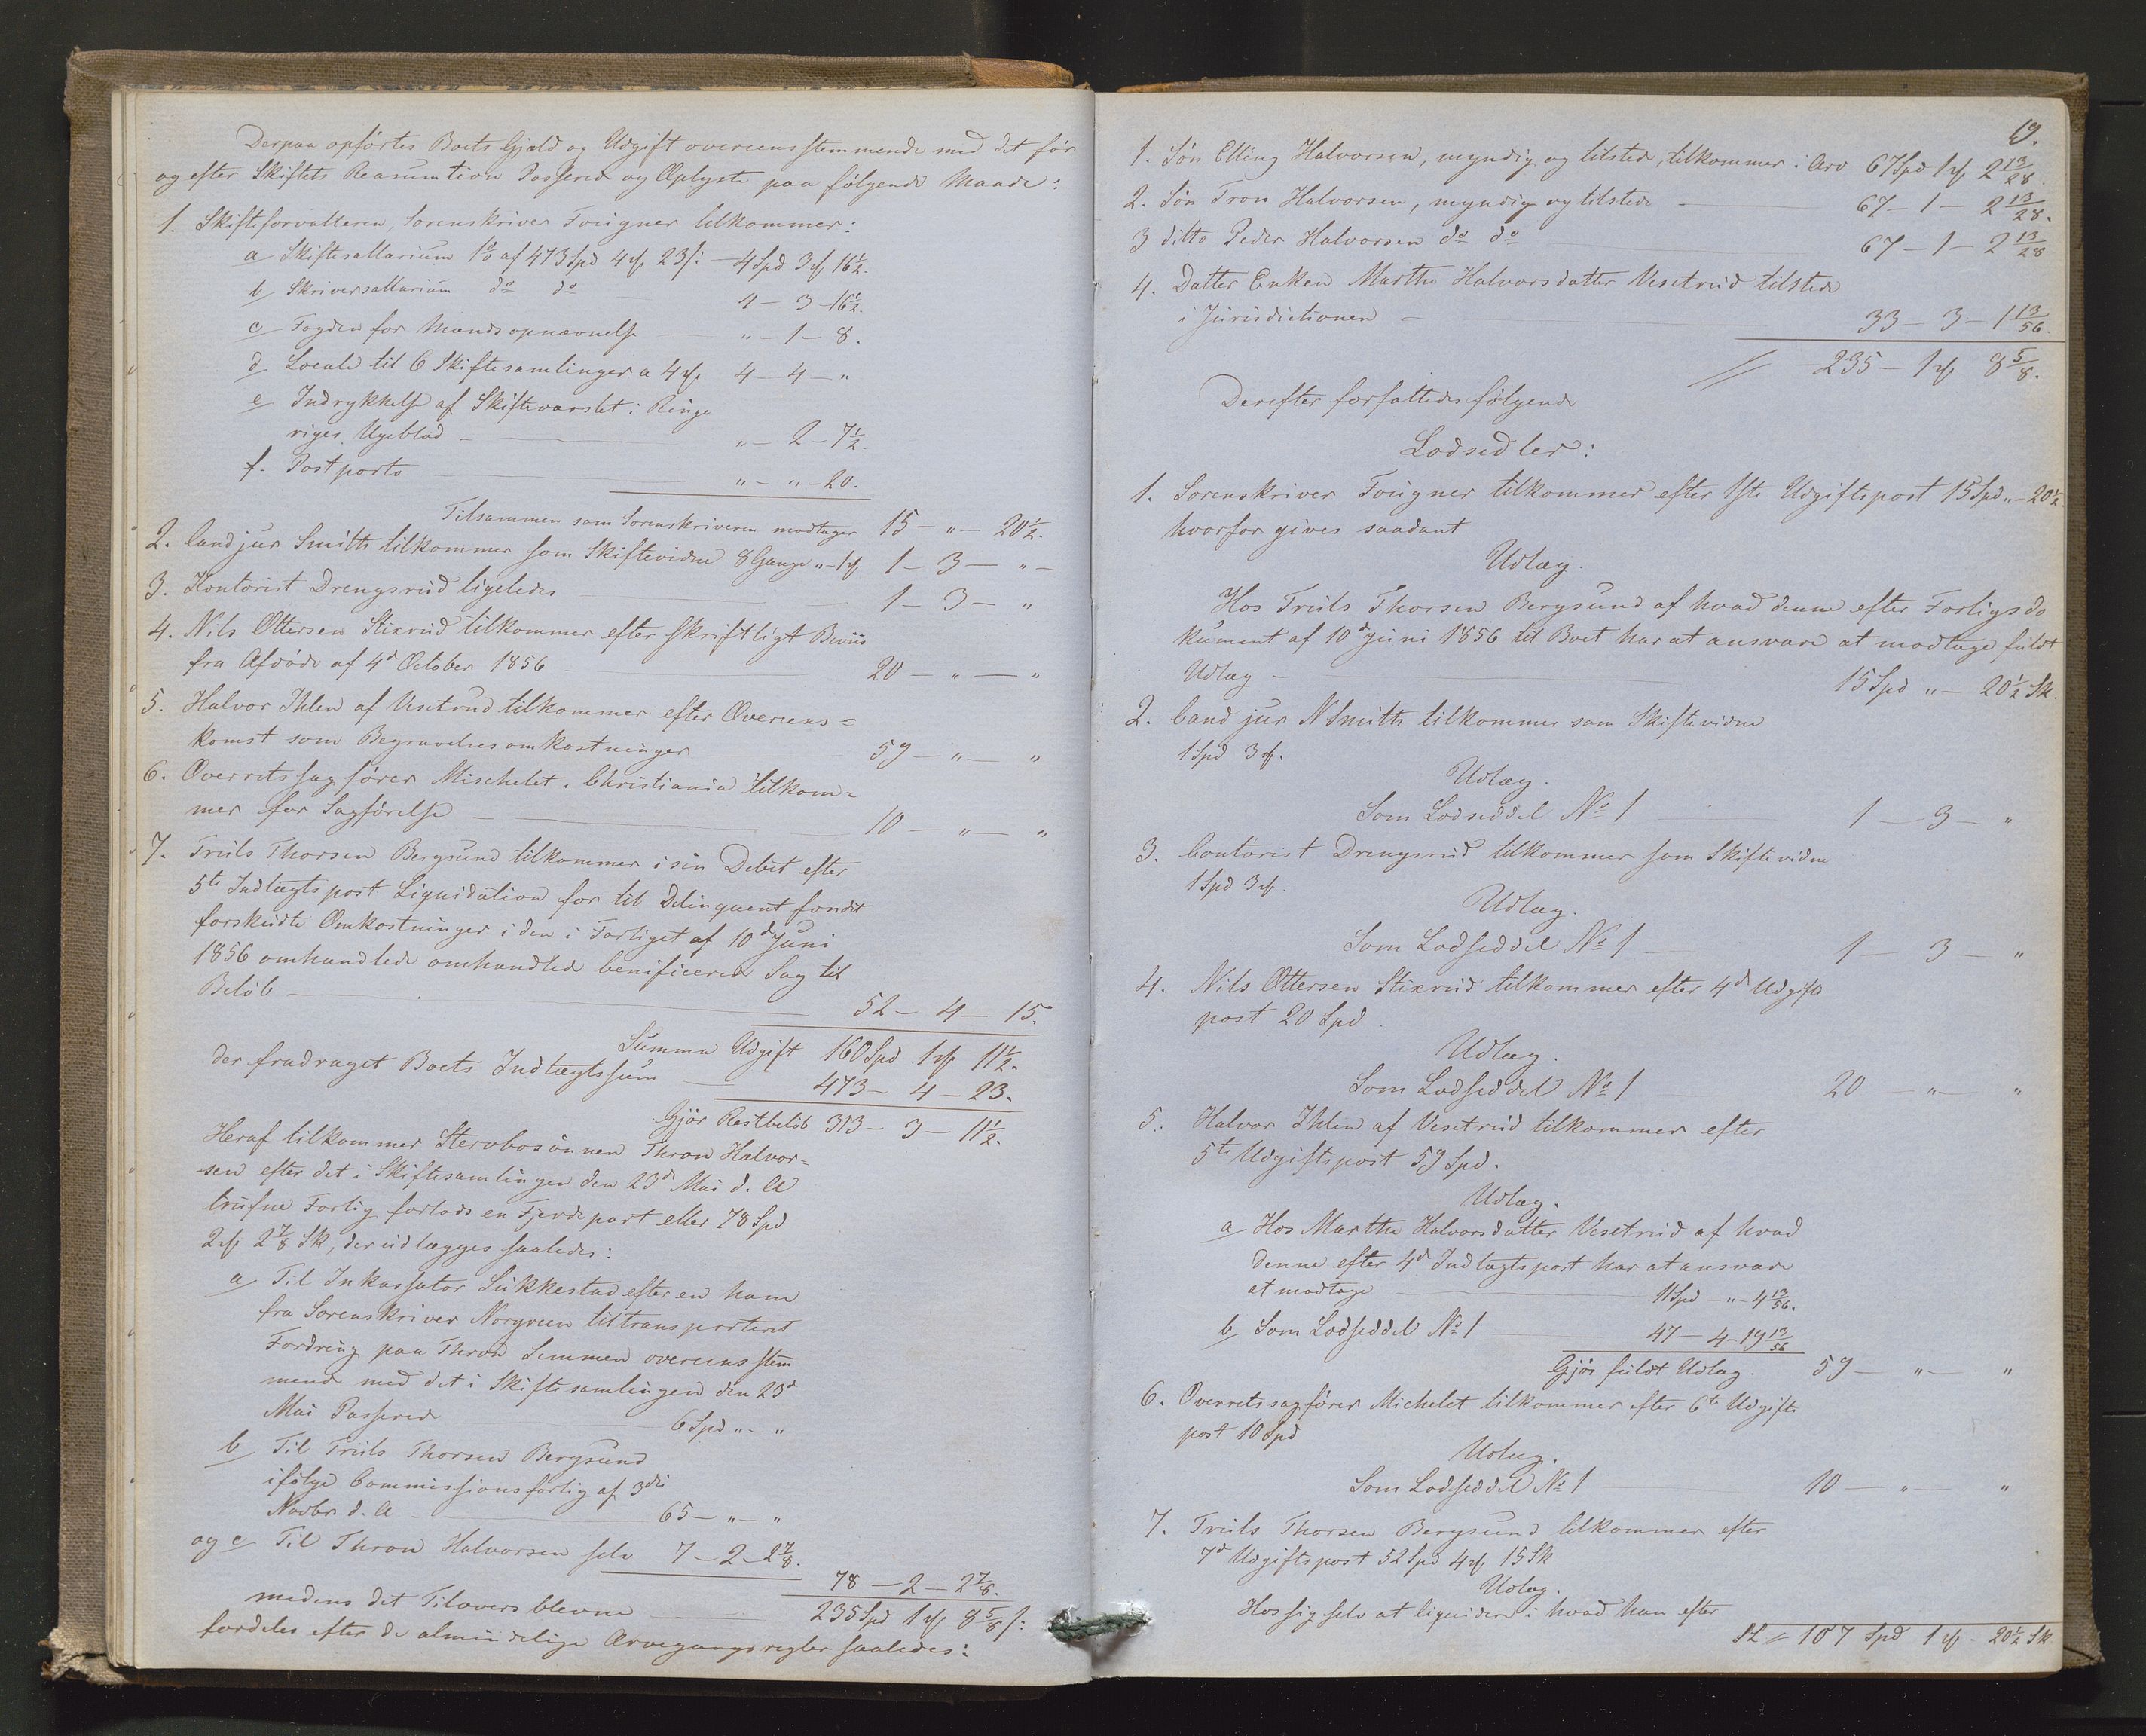 Derpaa opførtes Boets Gjæld og Udgift overeensstemmende med det før
og efter Skiftets Reasumtion Passered og Oplyste paa følgende Maade:
1. Skifteforvalteren, Sorenskriver Fougner tilkommer:
a Skiftesallarium 1% af 473 Spd 4 ℳ 23 ß: - 4 Spd 3 ℳ 16½.
b Skriversallarium do do 4 - 3 - 16½.
c Fogden for Mandsopnævnelse " - 1 - 8.
d Locale til 6 Skiftesamlinger a 4 ℳ 4 - 4 - "
e Indrykkelse af Skiftevarslet i Ringe
riges Ugeblad - " - 2 - 7½.
f. Postporto " - " - 20.
Tilsammen som Sorenskriveren modtager 15 - " - 20½.
2. Cand jur Smith tilkommer som Skiftevidne 8 Gange " - 1 ℳ 1 - 3 - " -
3. Kontorist Drengsrud ligeledes 1 - 3 - "
4. Nils Ottersen Stixrud tilkommer efter skriftligt Beviis
fra Afdøde af 4d October 1856 20 - " - "
5. Halvor Ihlen af Vesetrud tilkommer efter Overeens=
komst som Begravelsesomkostninger 59 - " - "
6. Overretssagfører Mischelet i Christiania tilkom=
mer for Sagførelse - 10 - " - "
7. Truls Thorsen Bergsund tilkommer i sin Debet efter
5te Indtægtspost Liquidation for til Delinquent fondet
forskudte Omkostninger i den i Forliget af 10d Juni
1856 omhandlede omhandled benificered Sag til
Beløb 52 - 4 - 15.
Summa Udgift 160 Spd 1 ℳ 11½.
der fradraget Boets Indtægtssum 473 - 4 - 23.
Gjør Restbeløb 313 - 3 - 11½.
Heraf tilkommer Stervbosønnen Thron Halvor=
sen efter det i Skiftesamlingen den 23d Mai d. A
trufne Forlig forlods en Fjerdepart eller 78 Spd
2 ℳ 2⅞ Sk, der udlægges saaledes:
a Til Inkassator Sukkestad efter en ham
fra Sorenskriver Norgreen tiltransporteret
Fordring paa Thron Semmen overeensstem
mend med det i Skiftesamlingen den 23d
Mai Passered 6 Spd " - "
b Til Truls Thorsen Bergsund
ifølge Commissionsforlig af 3die
Novbr d. A - 65 - " - "
og c Til Thron Halvorsen selv 7 - 2 - 2⅞.
78 - 2 - 2⅞.
medens det Tiloversblevne 235 Spd 1 ℳ 8⅝ ß:
fordeles efter de almindelige Arvegangsregler saaledes:
19.
1. Søn Elling Halvorsen, myndig og tilstede, tilkommer i Arv 67 Spd 1 ℳ 2 13/28.
2. Søn Tron Halvorsen, myndig og tilstede - 67 - 1 - 2 13/28.
3 ditto Peder Halvorsen do do 67 - 1 - 2 13/28
4. Datter Enken Marthe Halvorsdatter Vesetrud tilstede
i Jurisdictionen - 33 - 3 - 1 13/56.
235 - 1 ℳ 8⅝.
Derefter forfattedes følgende
Lodsedler:
1. Sorenskriver Fougner tilkommer efter 1ste Udgiftspost 15 Spd " - 20½.
hvorfor gives saadant
Udlæg.
Hos Truls Thorsen Bergsund af hvad denne efter Forligsdo
kument af 10d Juni 1856 til Boet har at ansvare at modtage fuldt
Udlæg - 15 Spd " - 20½ Sk.
2. Cand jur N Smith tilkommer som Skiftevidne
1 Spd 3 ℳ.
Udlæg.
Som Lodseddel No 1 1 - 3 - "
3. Contorist Drengsrud tilkommer som Skiftevidne
1 Spd 3 ℳ.
Udlæg.
Som Lodseddel No 1 1 - 3 - "
4. Nils Ottersen Stixrud tilkommer efter 4d Udgifts
post 20 Spd
Udlæg.
Som Lodseddel No 1 20 - " - "
5. Halvor Ihlen af Vesetrud tilkommer efter
5te Udgiftspost 59 Spd.
Udlæg.
a Hos Marthe Halvorsdatter Vesetrud af hvad
denne efter 4d Indtægtspost har at ansvare
at modtage 11 Spd - " - 4 13/56.
b Som Lodseddel No 1 47 - 4 - 19 13/56
Gjør fuldt Udlæg. 59 - " - "
6. Overretssagfører Michelet tilkommer efter 6te Udgifts
post 10 Spd
Udlæg.
Som Lodseddel No 1 10 - " - "
7. Truls Thorsen Bergsund tilkommer efter
7d Udgiftspost 52 Spd 4 ℳ 15 Sk
Udlæg.
Hos sig selv at liquidere i hvad han efter
107 Spd 1 ℳ - 20½ Sk